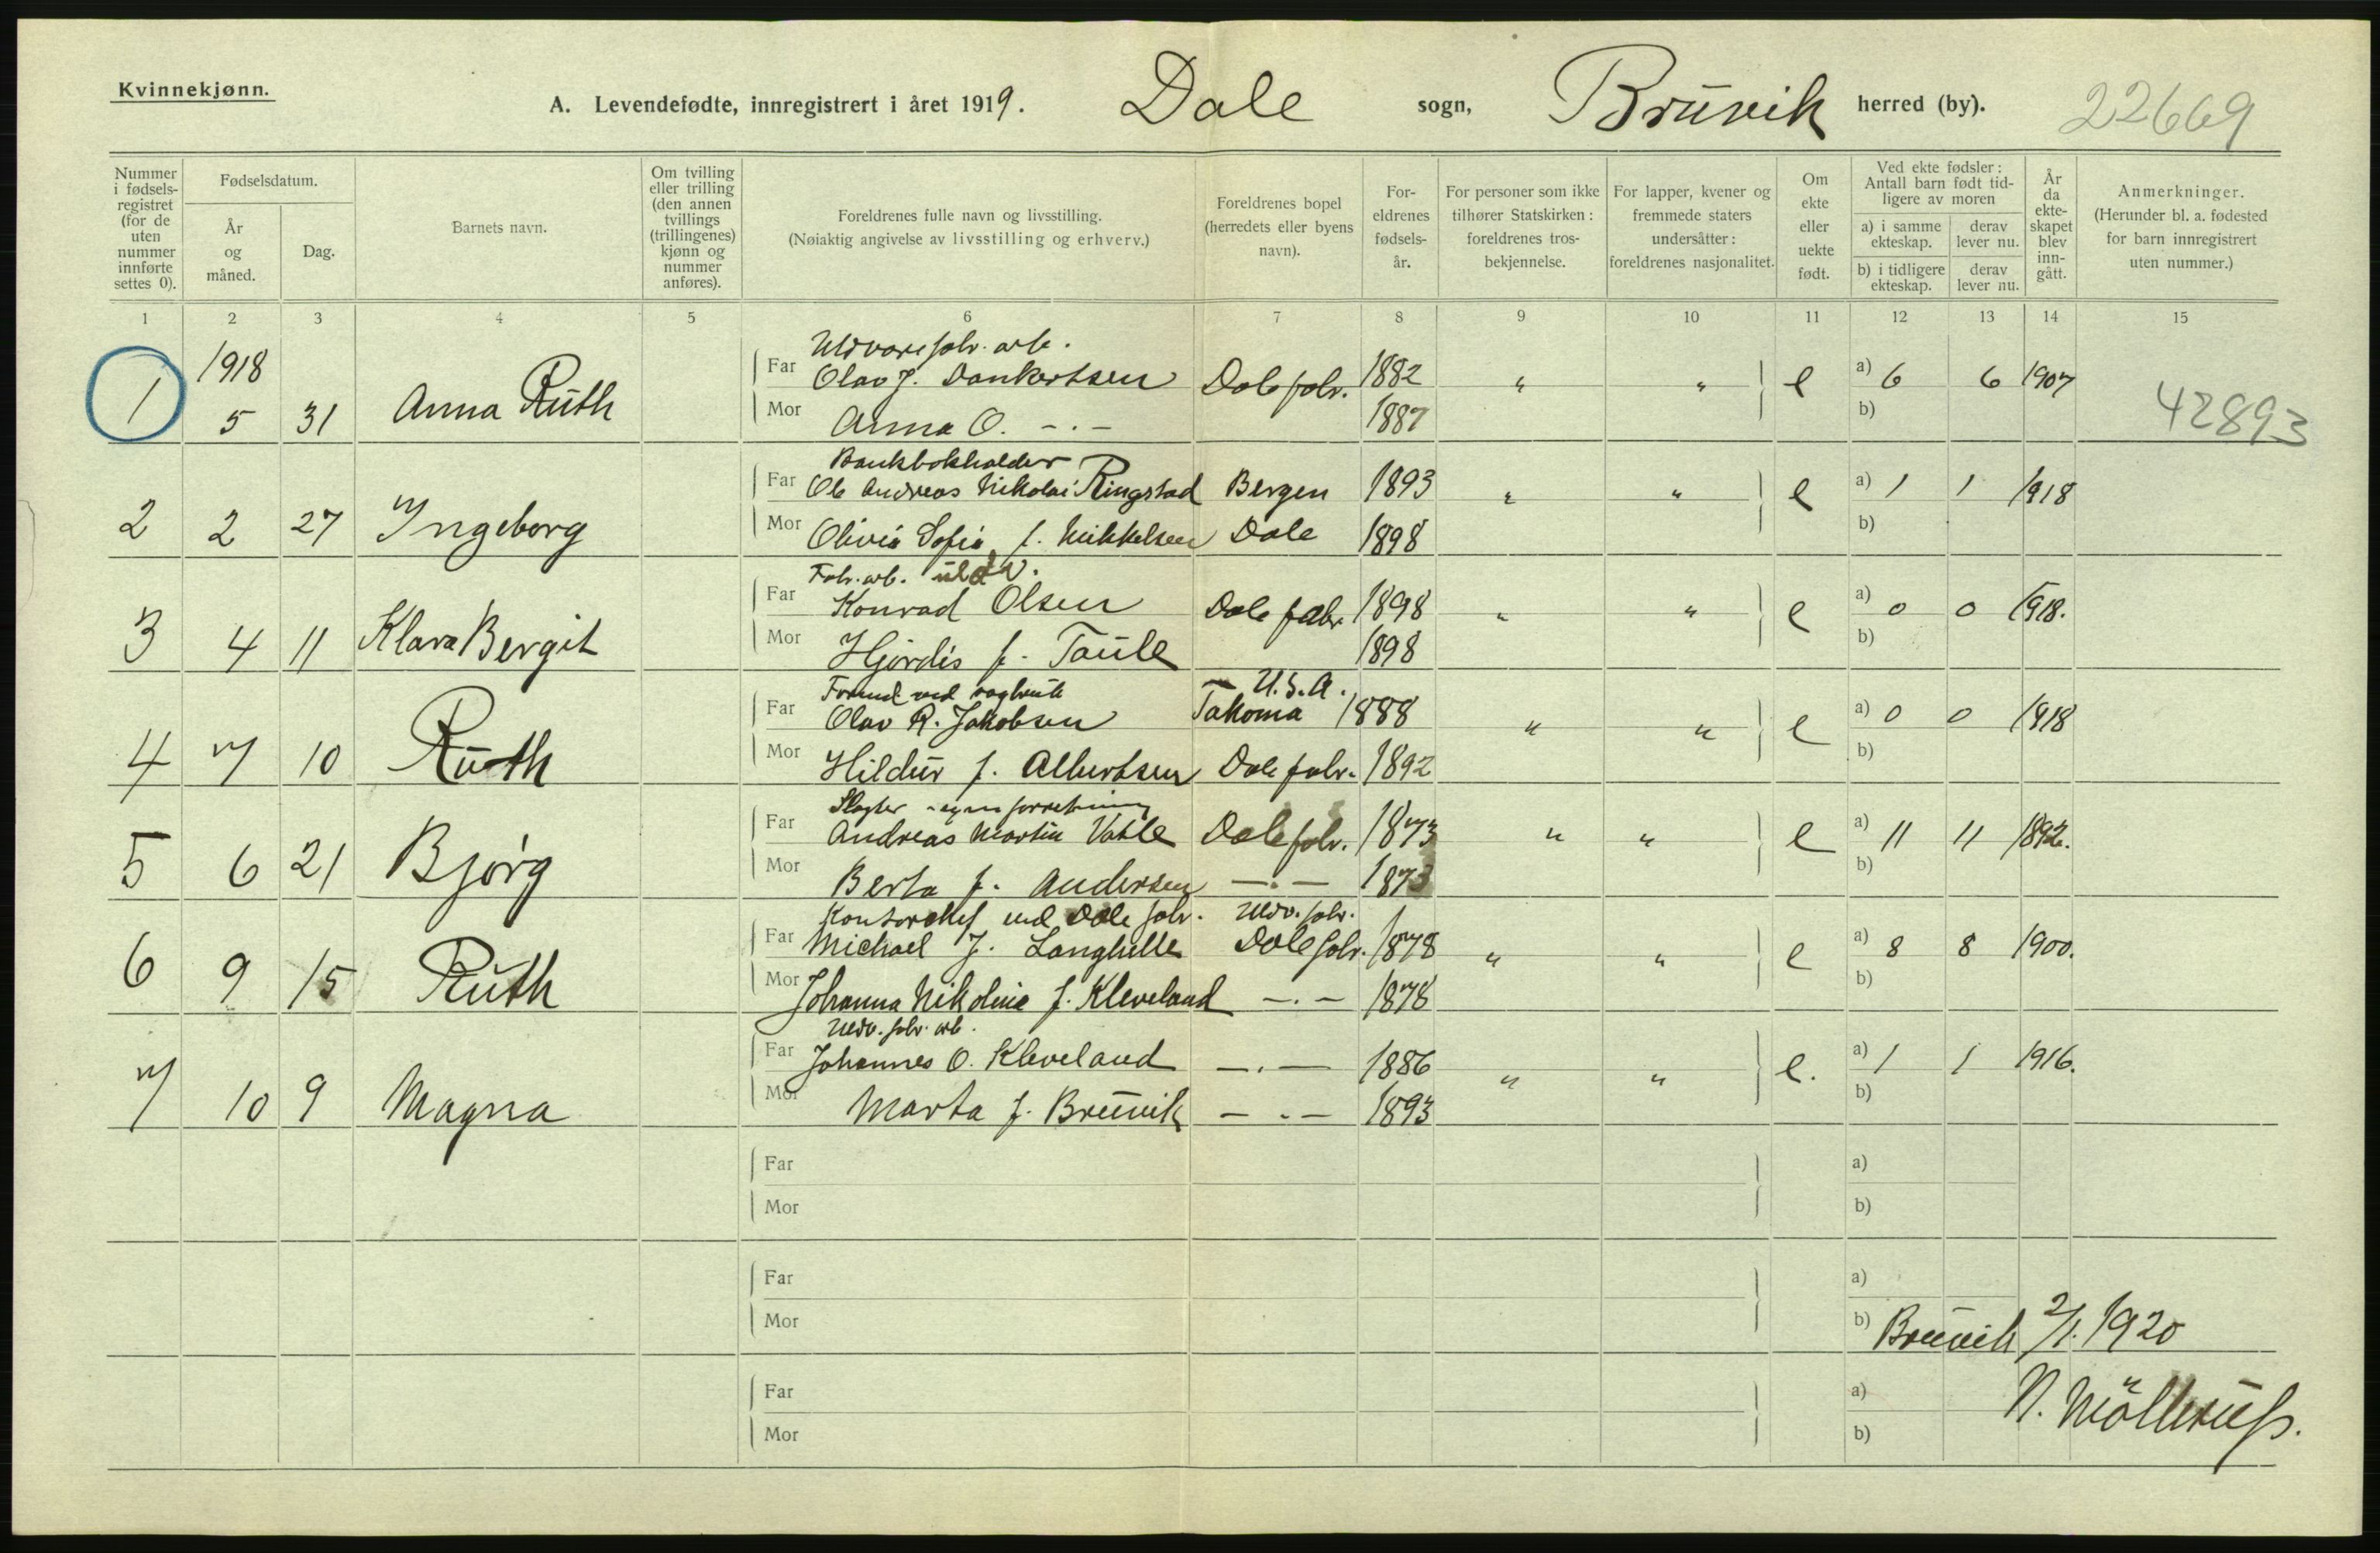 Kvinnekjønn.
A. Levendefødte, innregistrert i året 1919. Dale sogn, Bruvik herred (by). 22669
Nummer i fødsels-registret (for de uten nummer innførte settes 0).
Fødselsdatum.
År og måned.
Dag.
Barnets navn.
Om tvilling eller trilling (den annen tvillings (trillingenes) kjønn og nummer anføres).
Foreldrenes fulle navn og livsstilling.
(Nøiaktig angivelse av livsstilling og erhverv.)
Foreldrenes bopel (herredets eller byens navn).
For-eldrenes fødsels-år.
For personer som ikke tilhører Statskirken: foreldrenes tros-bekjennelse.
For lapper, kvener og fremmede staters undersåtter: foreldrenes nasjonalitet.
Om ekte eller uekte født.
Ved ekte fødsler: Antall barn født tid-ligere av moren
a) i samme ekteskap.
derav lever nu.
b) i tidligere ekteskap.
derav lever nu.
År da ekte-skapet blev inn-gått.
Anmerkninger.
(Herunder bl. a. fødested for barn innregistrert uten nummer.)
1 2 3 4 5 6 7 8 9 10 11 12 13 14 15
1918
Uldvarefabr. arb.
Far Olav J. Dankertsen Dale fabr. 1882 " " e a) 6 6 1907
1 5 31 Anna Ruth
Mor Anna O. -.- 1887 b) 42893
Bankbokholder
Far Ole Andreas Nikolai Ringstad Bergen 1893 " " e a) 1 1 1918
2 2 27 Ingeborg
Mor Olivia Sofia f. Mikkelsen Dale 1898 b)
Fabr. arb. uldv.
Far Konrad Olsen Dale fabr. 1898 " " e a) 0 0 1918.
3 4 11 Klara Bergit
Mor Hjördis f. Taule 1898 b)
U.S.A.
Far Olav R. Jakobsen Takoma 1888 " " e a) 0 0 1918
4 7 10 Ruth
Mor Hildur f. Albertsen Dale fabr. 1892 b)
Slagter - egen forretning
Far Andreas Martin Vatle Dale fabr. 1873 " " e a) 11 11 1892.
5 6 21 Bjørg
Mor Berta f. Andersen -.- 1873 b)
Kontorchef ved Dale fabr. Uldv. fabr.
Far Michael J. Langhelle Dale fabr. 1878 " " e a) 8 8 1900.
6 9 15 Ruth
Mor Johanna Nikoline f. Kleveland -.- 1878 b)
Uldv. fabr. arb.
Far Johannes O. Kleveland -.- 1886 " " e. a) 1 1 1916.
7 10 9 Magna
Mor Marta f. Bruvik -.- 1893 b)
Far a)
Mor b)
Far a)
Mor b) Bruvik 2/1. 1920
Far a)
Mor b)